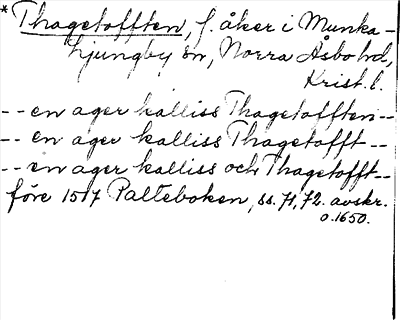 * Thagetofften, f. åker i Munka-
Ljungby sn, Norra Åsbo hd,
Krist. l.
-- en ager kalliss Thagetofften --
-- en ager kalliss Thagetofft --
-- en ager kalliss och Thagetofft --
före 1517 Palteboken, ss. 71, 72. avskr.
o. 1650.